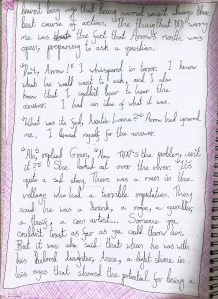 learnt long ago that being normal wasn't always the
best course of action. The thing that DID worry
me was the fact that Arrow's mouth was
open, preparing to ask a question.
"Don't, Arrow!" I whispered in horror. I knew
what he would want to ask, and I also
knew that I couldn't bear to hear the
answer. I had an idea of what it was.
"What was its God, Auntie Lorna?" Arrow had ignored
me. I braced myself for the answer.
"Ah," replied Gran, "Now THAT's the problem, isn't
it?" She looked out over the river. "It's
quite a sad story. There was a man in the
village who had a terrible reputation. They
said he was a drunk, a rogue, a gambler,
a thief, a con artist... Someone you
couldn't trust as far as you could throw him.
But it was also said that when he was with
his beloved daughter, Anna, a light shone in
his eyes that showed the potential for being a